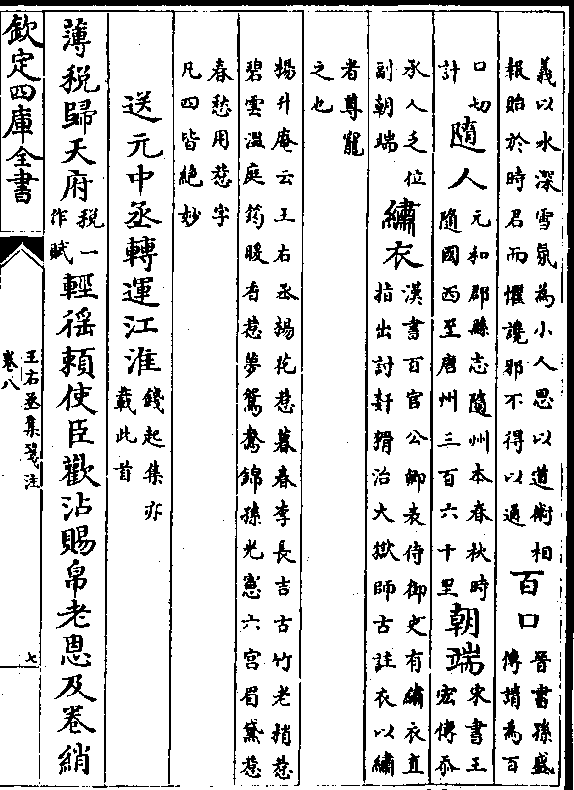 義以水深雪氛為小人思以道術相
報貽於時君而懼讒邪不得以通
百口
晉書孫盛
傳諸為百
口切
計
隨人
元和郡縣志隨州本春秋時
隨國西至唐州三百六十里
朝端
宋書王
宏傳忝
承人乏位
副朝端
繡衣
漢書百官公卿表侍御史有繡衣直
指出討姧猾治大獄師古註衣以繡
者尊寵
之也
楊升庵云王右丞楊花惹暮春李長吉古竹老稍惹
碧雲溫庭筠暖香惹夢鴛鴦錦孫光憲六宮眉黛惹
春愁用惹字
凡四皆絶妙
送元中丞轉運江淮
錢起集亦
載此首
薄稅歸天府
稅一
作賦
輕徭頼使臣歡沾賜帛老恩及卷綃
欽定四庫全書
王右丞集箋注
卷八
七